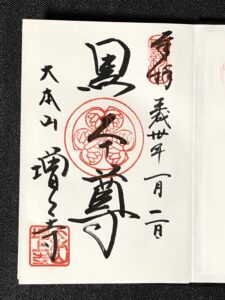 奉拝 平成卅年一月二日
黒本尊
大本山 増上寺